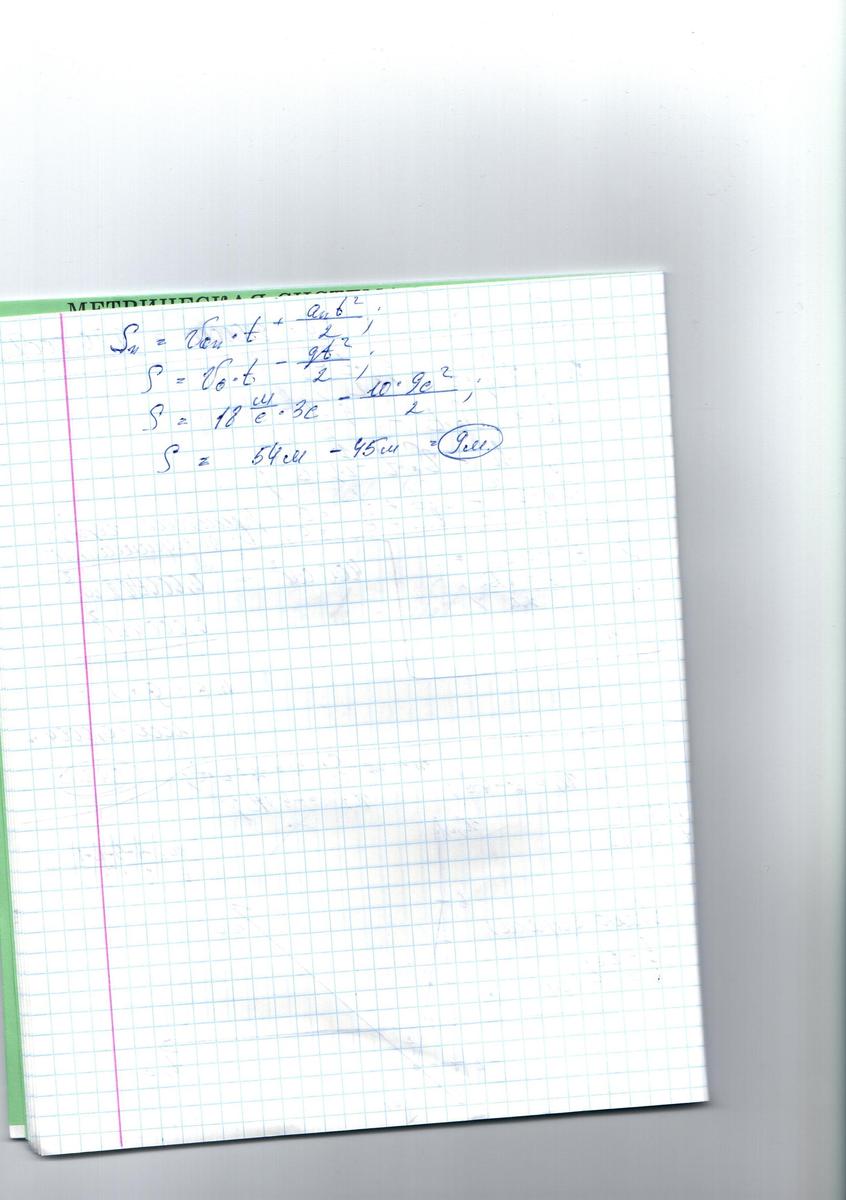 МЕТРИЧЕСКАЯ СИСТЕМА
Sₙ = v₀ₙ · t + aₙt²/2 ;
S = v₀ · t − gt²/2 ;
S = 18 м/с · 3с − 10 · 9с²/2 ;
S = 54м − 45м = 9м.